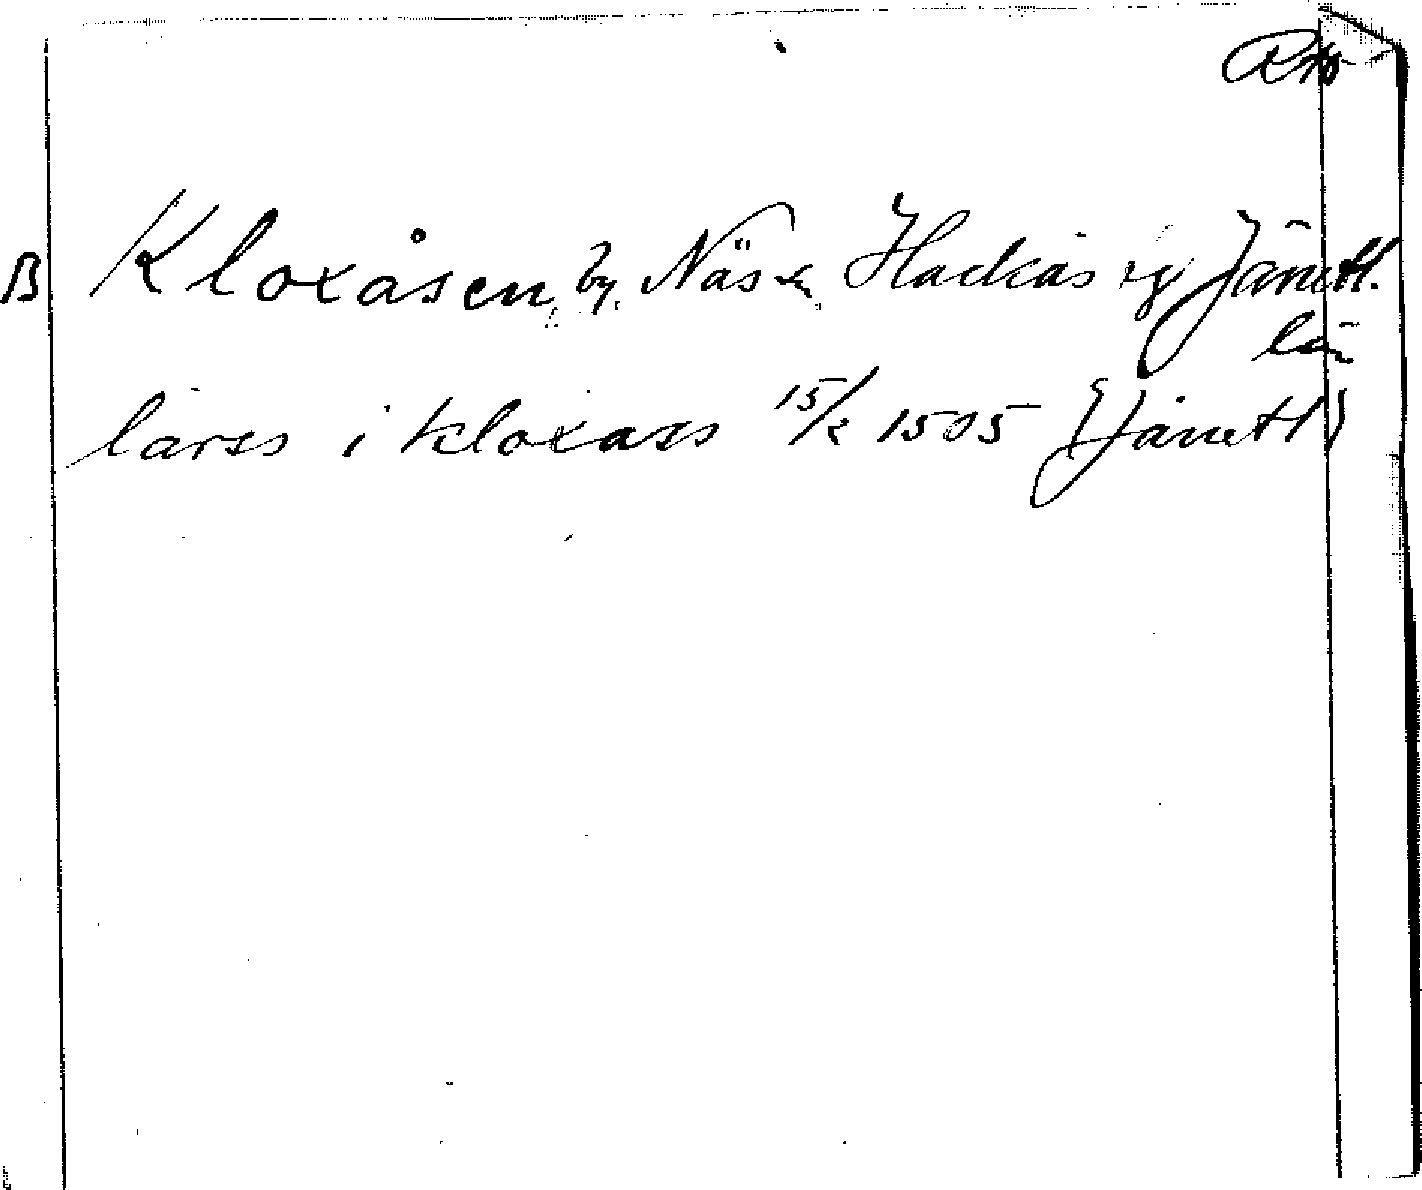 B Kloxåsen, by, Näs sn, Hackås tg Jämtl.
län
larss i kloxaas 15/2 1505 (Jämtl)